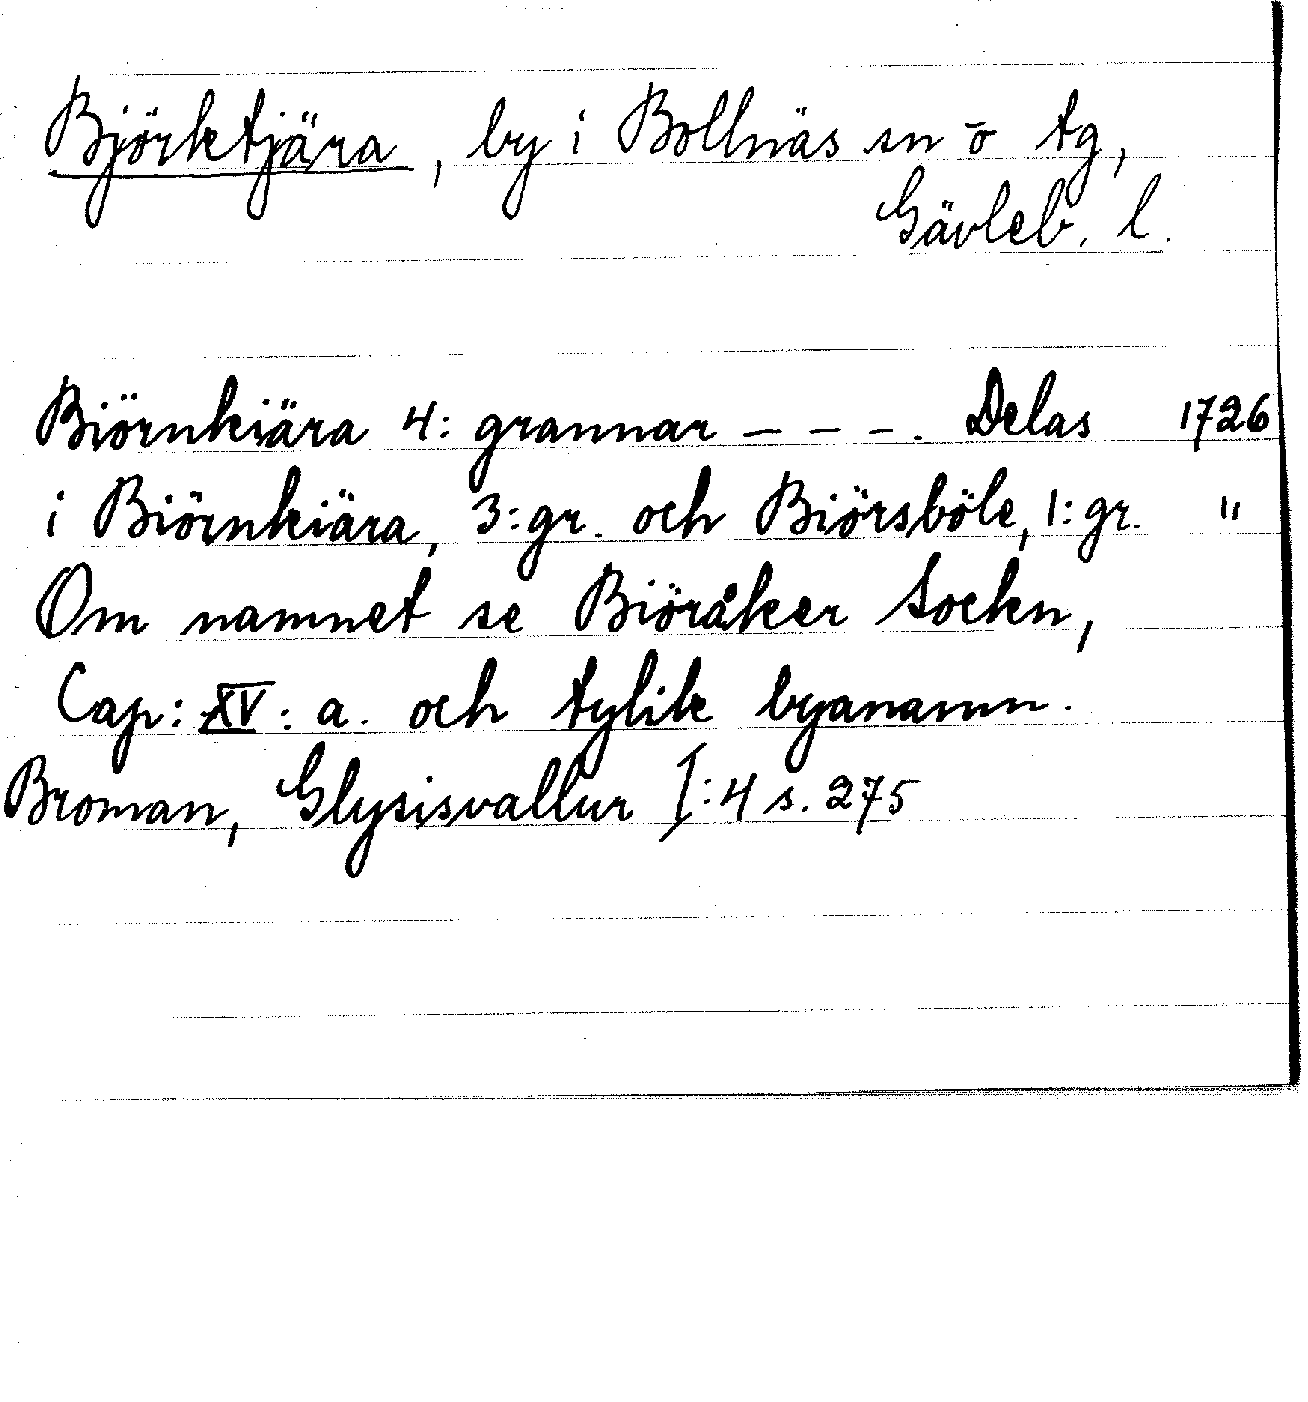 Björktjära, by i Bollnäs sn ō tg,
Gävleb. l.
Biörnkiära 4: grannar – – –. Delas 1726
i Biörnkiära, 3:gr. och Biörsböle, 1:gr. "
Om namnet se Biöråker Sockn,
Cap: XV: a. och tylik byanamn.
Broman, Glysisvallur I:4 s. 275